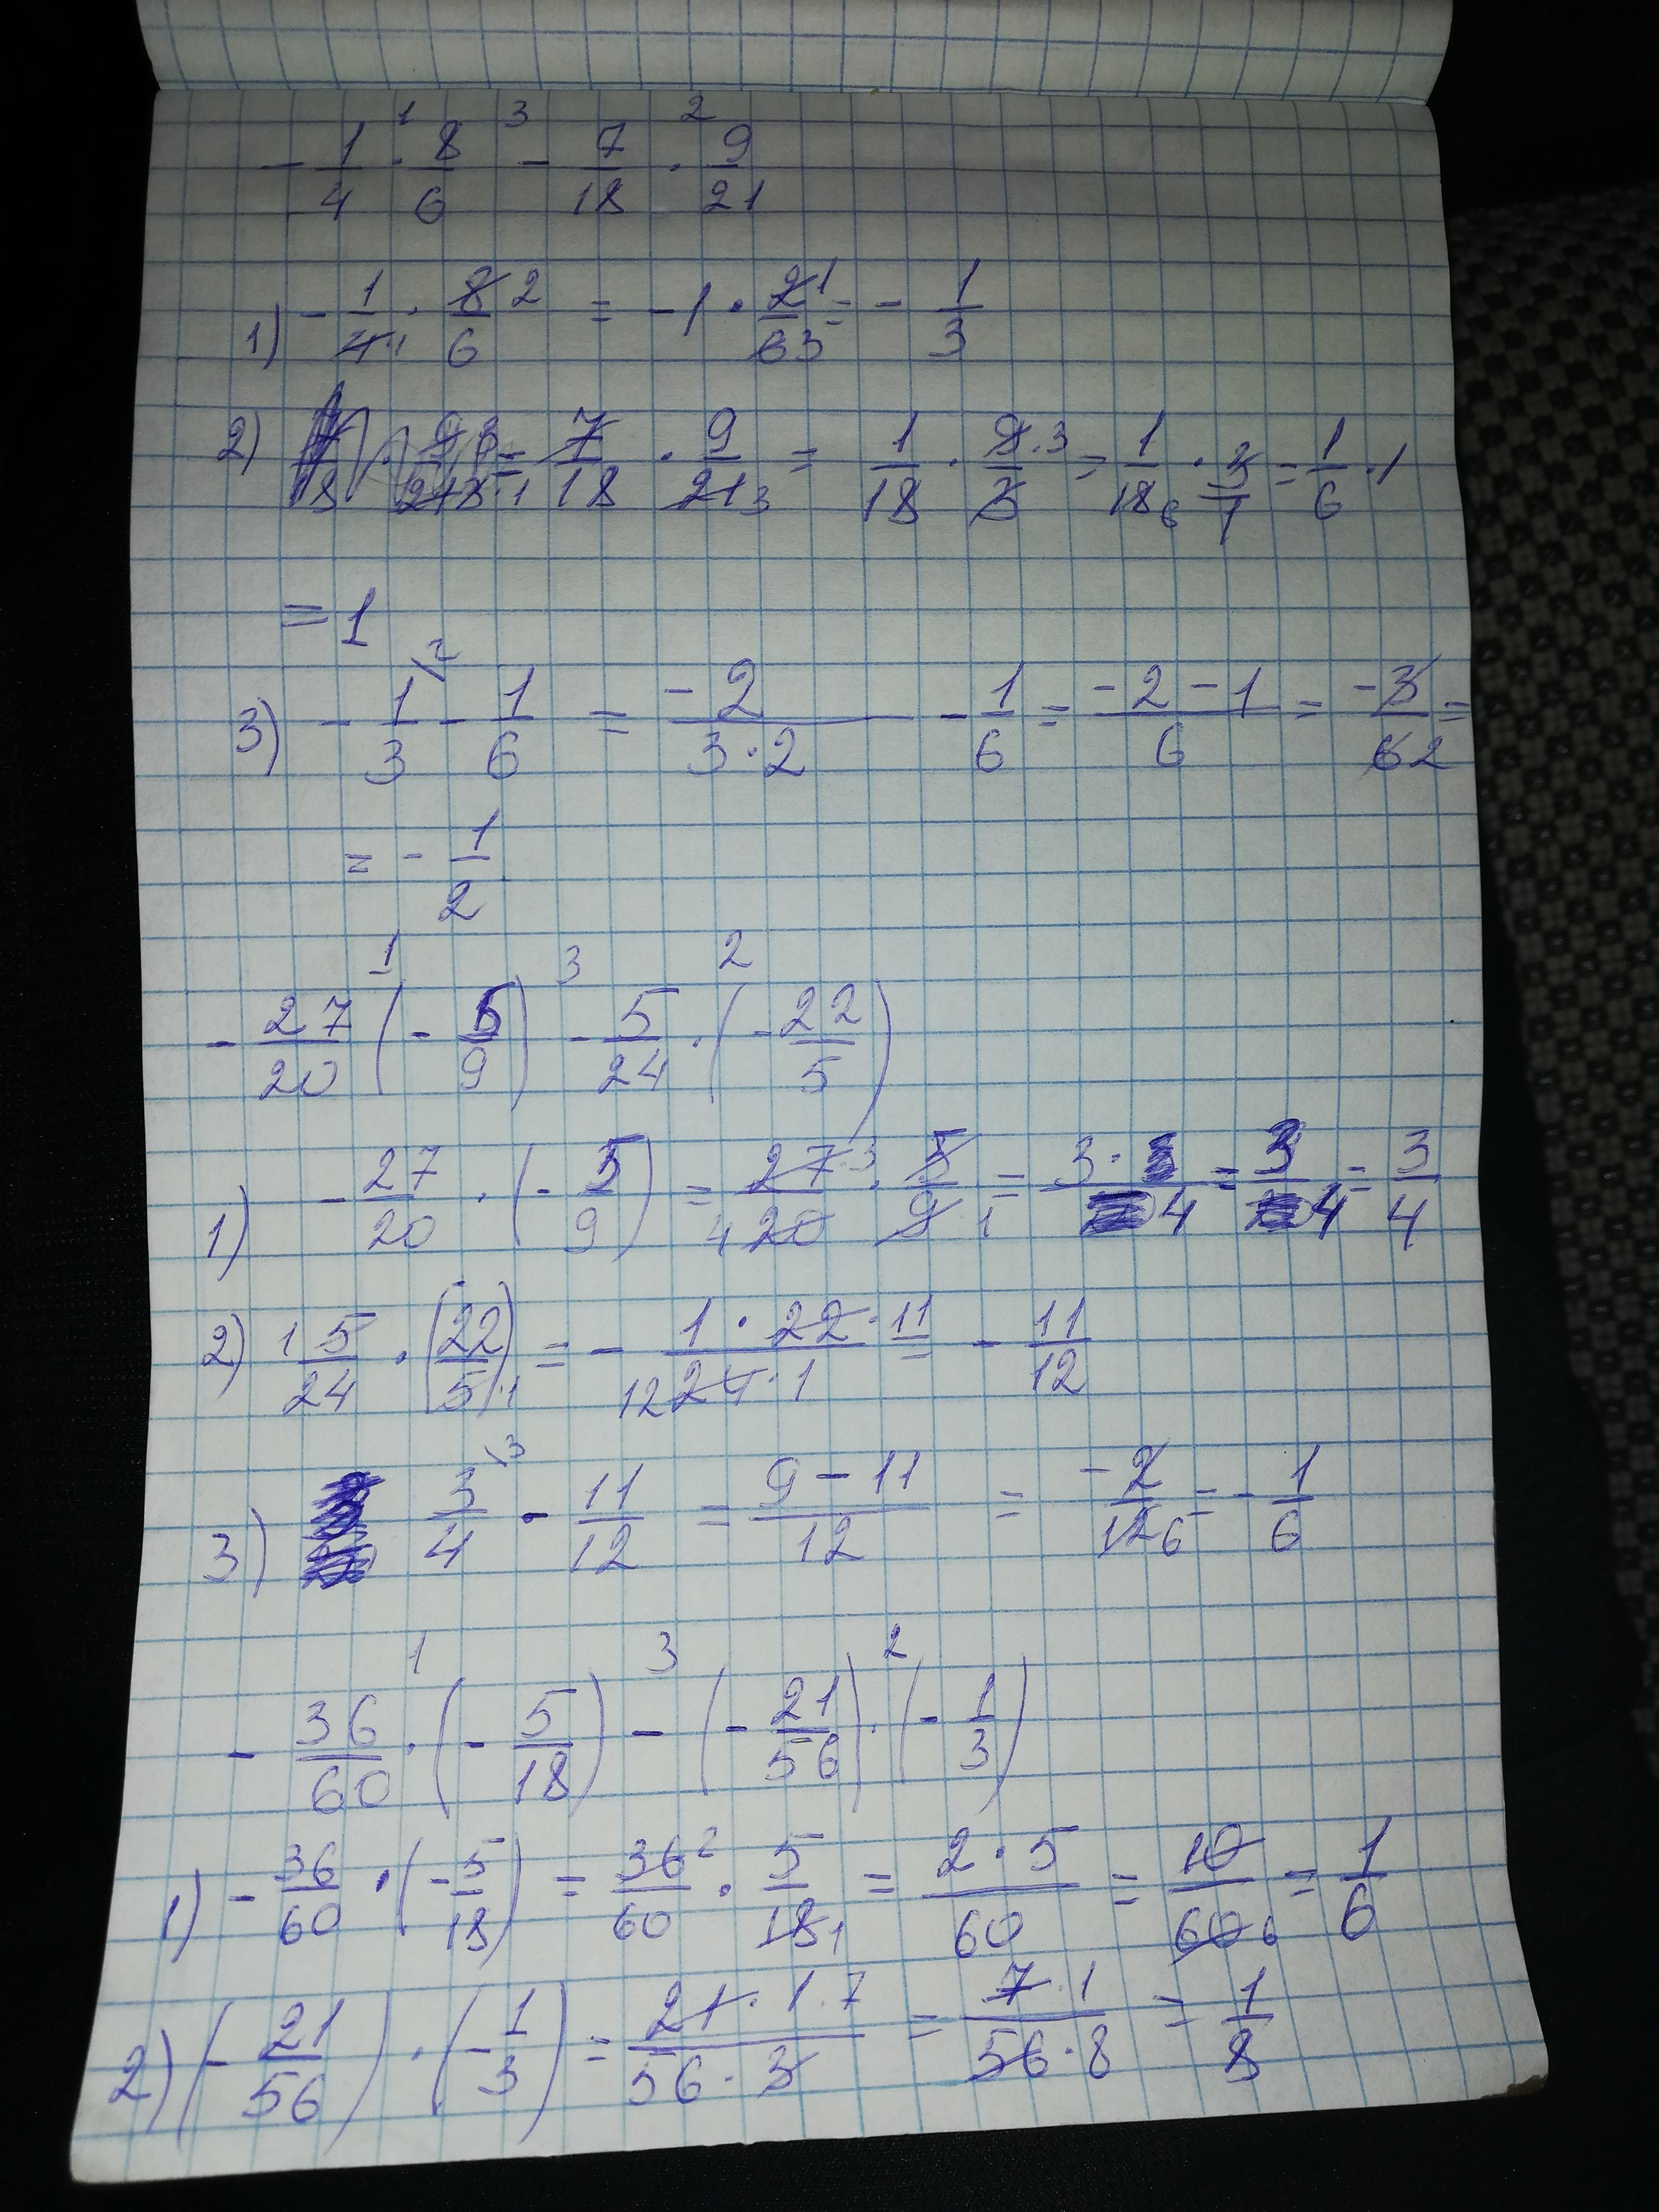 -1/4 ·¹ 8/6 -³ 7/18 ·² 9/21
1) -1/4 1 · 8 2/6 = -1 · 2 1/6 3 = -1/3
2) = 7/18 · 9/21 3 = 1/18 · 9·3/3 = 1/18 6 · 3/1 = 1/6 · 1
= 1
3) -1/3 \2 - 1/6 = -2/3·2 - 1/6 = -2-1/6 = -3/6 2 =
= -1/2
-27/20 ¹(-5/9) -³ 5/24 ·² (-22/5)
1) -27/20 · (-5/9) = 27·3/4 20 · 5/9 1 = 3·/4 = 3/4 = 3/4
2) 1 5/24 · (-22/5·1) = -1·22·11/12 24·1 = -11/12
3) 3/4 \3 - 11/12 = 9-11/12 = -2/12 6 = -1/6
-36/60 ·¹ (-5/18) -³ (-21/56) ·² (-1/3)
1) -36/60 · (-5/18) = 36 2/60 · 5/18 1 = 2·5/60 = 10/60 6 = 1/6
2) (-21/56) · (-1/3) = 21·1·7/56·3 = 7·1/56·8 = 1/8